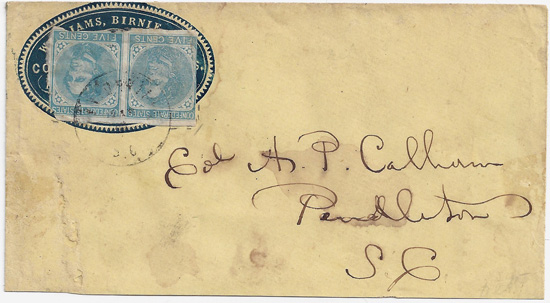 WILLIAMS, BIRNIE
CO
FIVE CENTS
FIVE CENTS
CONFEDERATE STATES
CONFEDERATE STATES
S.C
Col A. P. Calhoun
Pendleton
S. C